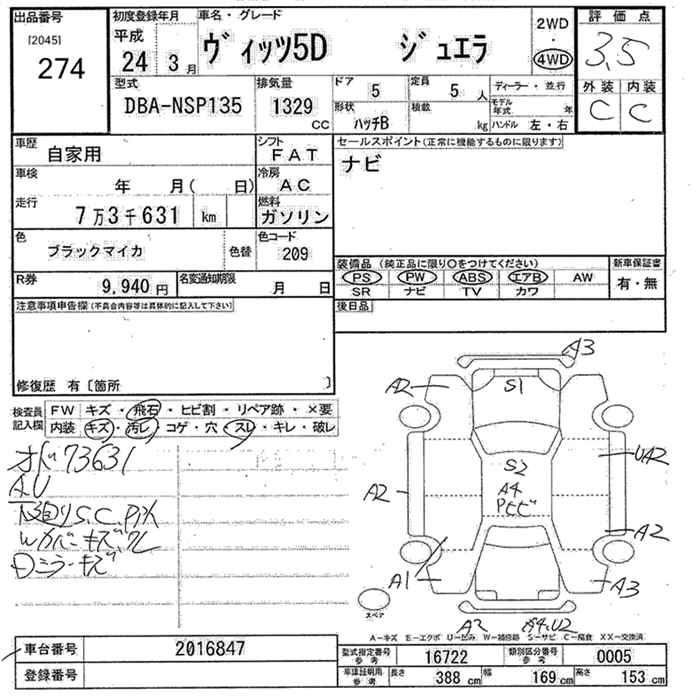 出品番号 初度登録年月 車名・グレード 2WD 評価点
[2045] 平成 ・ 3.5
274 24年 3月 ヴィッツ5D ジュエラ 4WD
型式 排気量 ドア 5 定員 5人 ディーラー・並行 外装 内装
DBA-NSP135 1329 CC 形状 ハッチB 積載 kg モデル年式 年 C C
ハンドル 左・右
車歴 自家用 シフト FAT セールスポイント(正常に機能するものに限ります)
車検 年 月( 日) 冷房 AC ナビ
走行 7万3千631 km 燃料 ガソリン
色 ブラックマイカ 色替 色コード 209
装備品 (純正品に限り○をつけてください) 新車保証書
R券 9,940円 名変通知期限 月 日 PS PW ABS エアB AW 有・無
SR ナビ TV カワ
注意事項申告欄(不具合内容等は具体的に記入して下さい) 後日品
修復歴 有〔箇所 〕
検査員記入欄 FW キズ・飛石・ヒビ割・リペア跡・×要
内装 キズ・汚レ・コゲ・穴・スレ・キレ・破レ
73631
A.U
S.C.
Wカバーキズ
ミラーキズ
A3
A2 S1
S2 UA2
A2 A4
A2
A1 A3
A2 A4.U2
スペア
A－キズ E－エクボ U－凹み W－補修跡 S－サビ C－腐食 XX－交換済
車台番号 2016847
登録番号
型式指定番号 参考 16722 類別区分番号 参考 0005
車庫証明用 参考 長さ 388 cm 幅 169 cm 高さ 153 cm